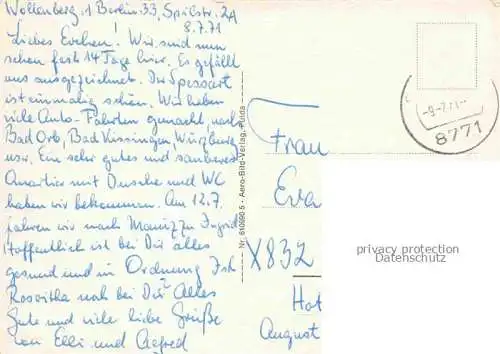 Wollenberg, 1 Berlin 33, Spilstr. 2A
8.7.71
Liebes Evchen! Wir sind nun
schon fast 14 Tage hier. Es gefällt
uns ausgezeichnet. Der Spessart
ist einmalig schön. Wir haben
viele Auto-Fahrten gemacht, nach
Bad Orb, Bad Kissingen, Würzburg
usw. Ein sehr gutes und sauberes
Quartier mit Dusche und WC
haben wir bekommen. Am 12.7.
fahren wir nach Mainz zu Ingrid
Hoffentlich ist bei Dir alles
gesund und in Ordnung Ist
Roswitha noch bei Dir Alles
Gute und viele liebe Grüße
von Elli und Alfred
Nr. 610990 5 - Aero-Bild-Verlag, Fulda
-9-7.71-
8771
Frau
Eva
X832
Hot
August
privacy protection
Datenschutz